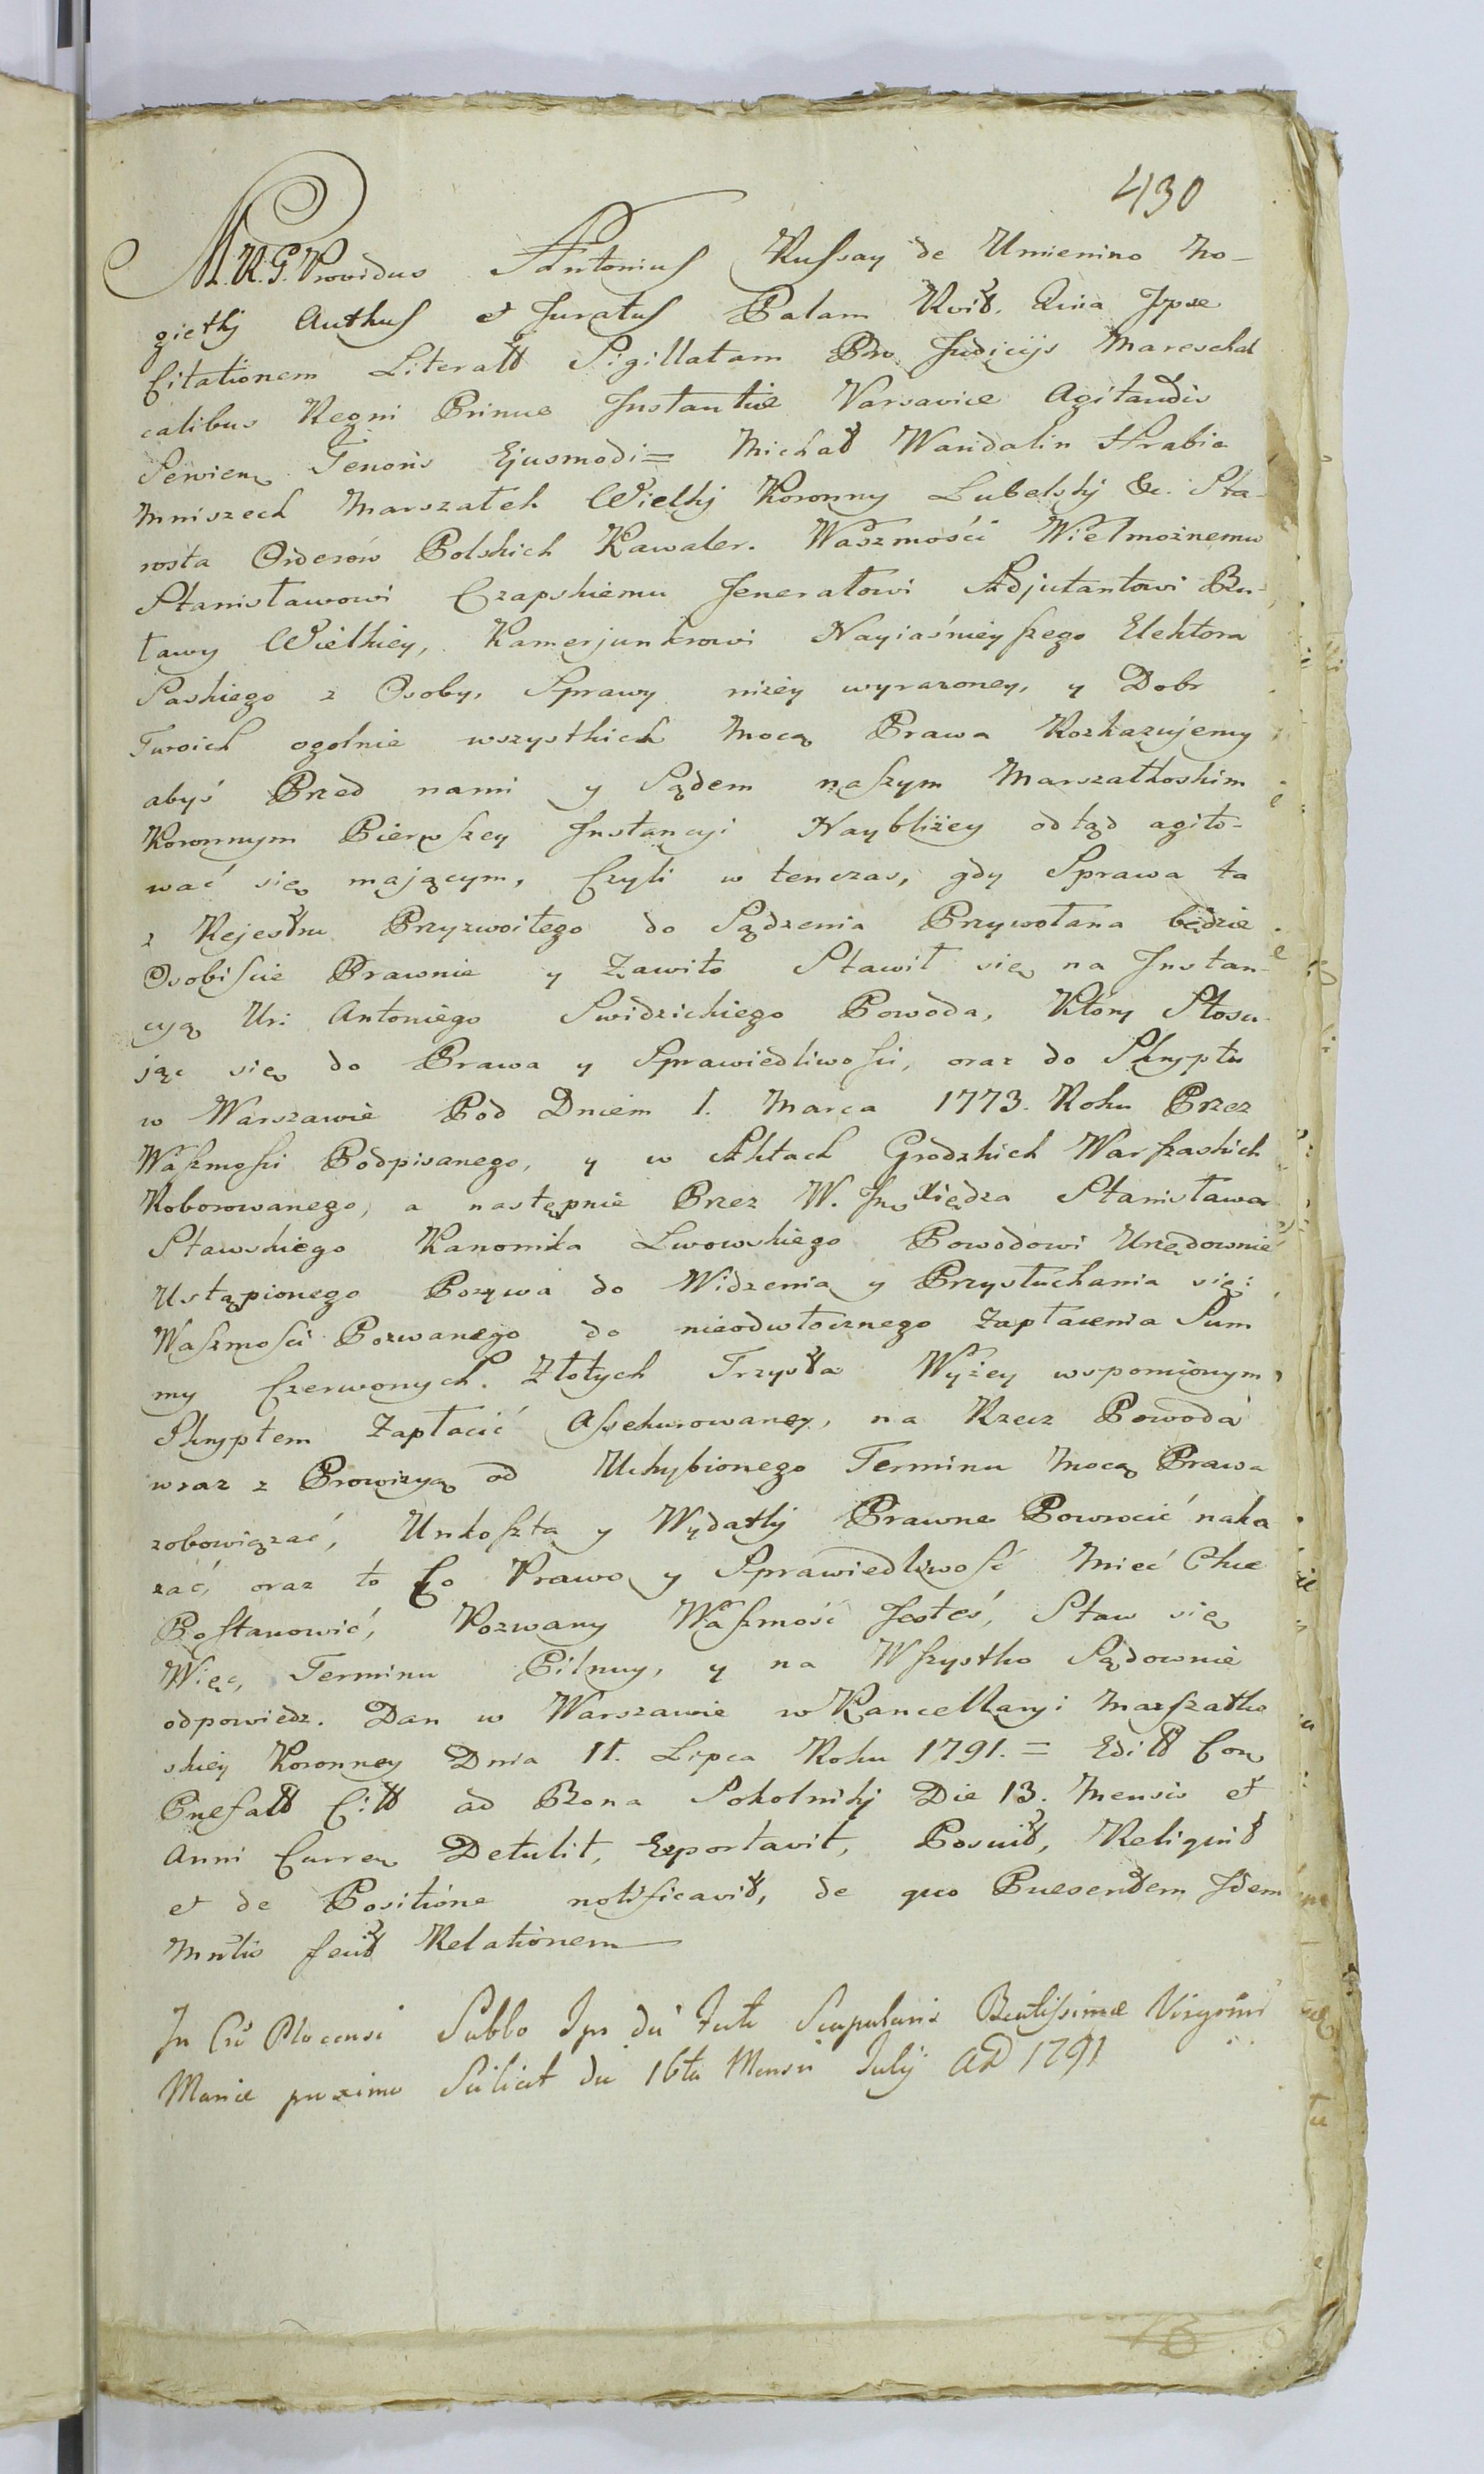 430
M.R.G. Providus Antonius Russay de Umienino No-
gietkj Authus et Juratus Palam Rvitt. Quia Ipse
Citationem Literatt Sigillatam Pro Judicijs Mareschal
calibus Regni Primae Instantiae Varsaviae Agitandis
Servien Tenoris Ejusmodi = Michał Wandalin Hrabia
Mniszech Marszałek Wielkj Koronny Lubelskj &c. Sta-
rosta Orderow Polskich Kawaler. Waszmości Wielmożnemu
Stanisławowi Czapskiemu Jenerałowi Adjutantowi Bu-
ławy Wielkiey, Kamerjunkrowi Nayiaśnieyszego Elektora
Saskiego z Osoby, Sprawy niżey wyrażoney, y Dobr
Twoich ogolnie wszystkich Mocą Prawa Rozkazujemy
abyś Przed nami y Sądem naszym Marszałkoskim
Koronnym Pierwszey Instancyi Naybliżey odtąd agito-
wać się mającym, Czyli w tenczas, gdy Sprawa ta
z Rejestru Przyzwoitego do Sądzenia Przywołana będzie
Osobiscie Prawnie y Zawito Stawił się na Instan-
cyą Ur: Antoniego Swidzickiego Powoda, Który Stosu-
jąc się do Prawa y Sprawiedliwości, oraz do Skryptu
w Warszawie Pod Dniem 1. Marca 1773. Roku Przez
Waszmości Podpisanego, y w Aktach Grodzkich Warszaskich
Roborowanego, a następnie Przez W. Jm Xiędza Stanisława
Sławskiego Kanonika Lwowskiego Powodowi Urzędownie
Ustąpionego Pozywa do Widzenia y Przysłuchania się:
Waszmości Pozwanego do nieodwłocznego Zapłacenia Sum
my Czerwonych Złotych Trzysta Wyżey wspomionym
Skryptem Zapłacić Assekurowaney, na Rzecz Powoda
wraz z Prowizyą od Uchybionego Terminu Mocą Prawa
zobowiązać, Unkoszta y Wydatkj Prawne Powrocić naka
zać, oraz to Co Prawo y Sprawiedliwość Mieć Chce
Postanowić, Pozwany Waszmość Jesteś, Staw się
Więc, Terminu Pilnuy, y na Wszystko Sądownie
odpowiedz. Dan w Warszawie w Kancellaryi Marszałko
skiey Koronney Dnia 11. Lipca Roku 1791. = Editt Con
Praefatt Citt ad Bona Sokolnikj Die 13. Mensis et
Anni Curren Detulit, Exportavit, Posuitt, Reliquitt
et de Positione notificavitt, de quo Praesentem Idem
Mntis fecitt Relationem
In Cu Plocensi Sabbo Ipo die Festi Scapularis Beatissimae Virginis
Mariae proximo Scilicet die 16ta Mensis Julij AD 1791